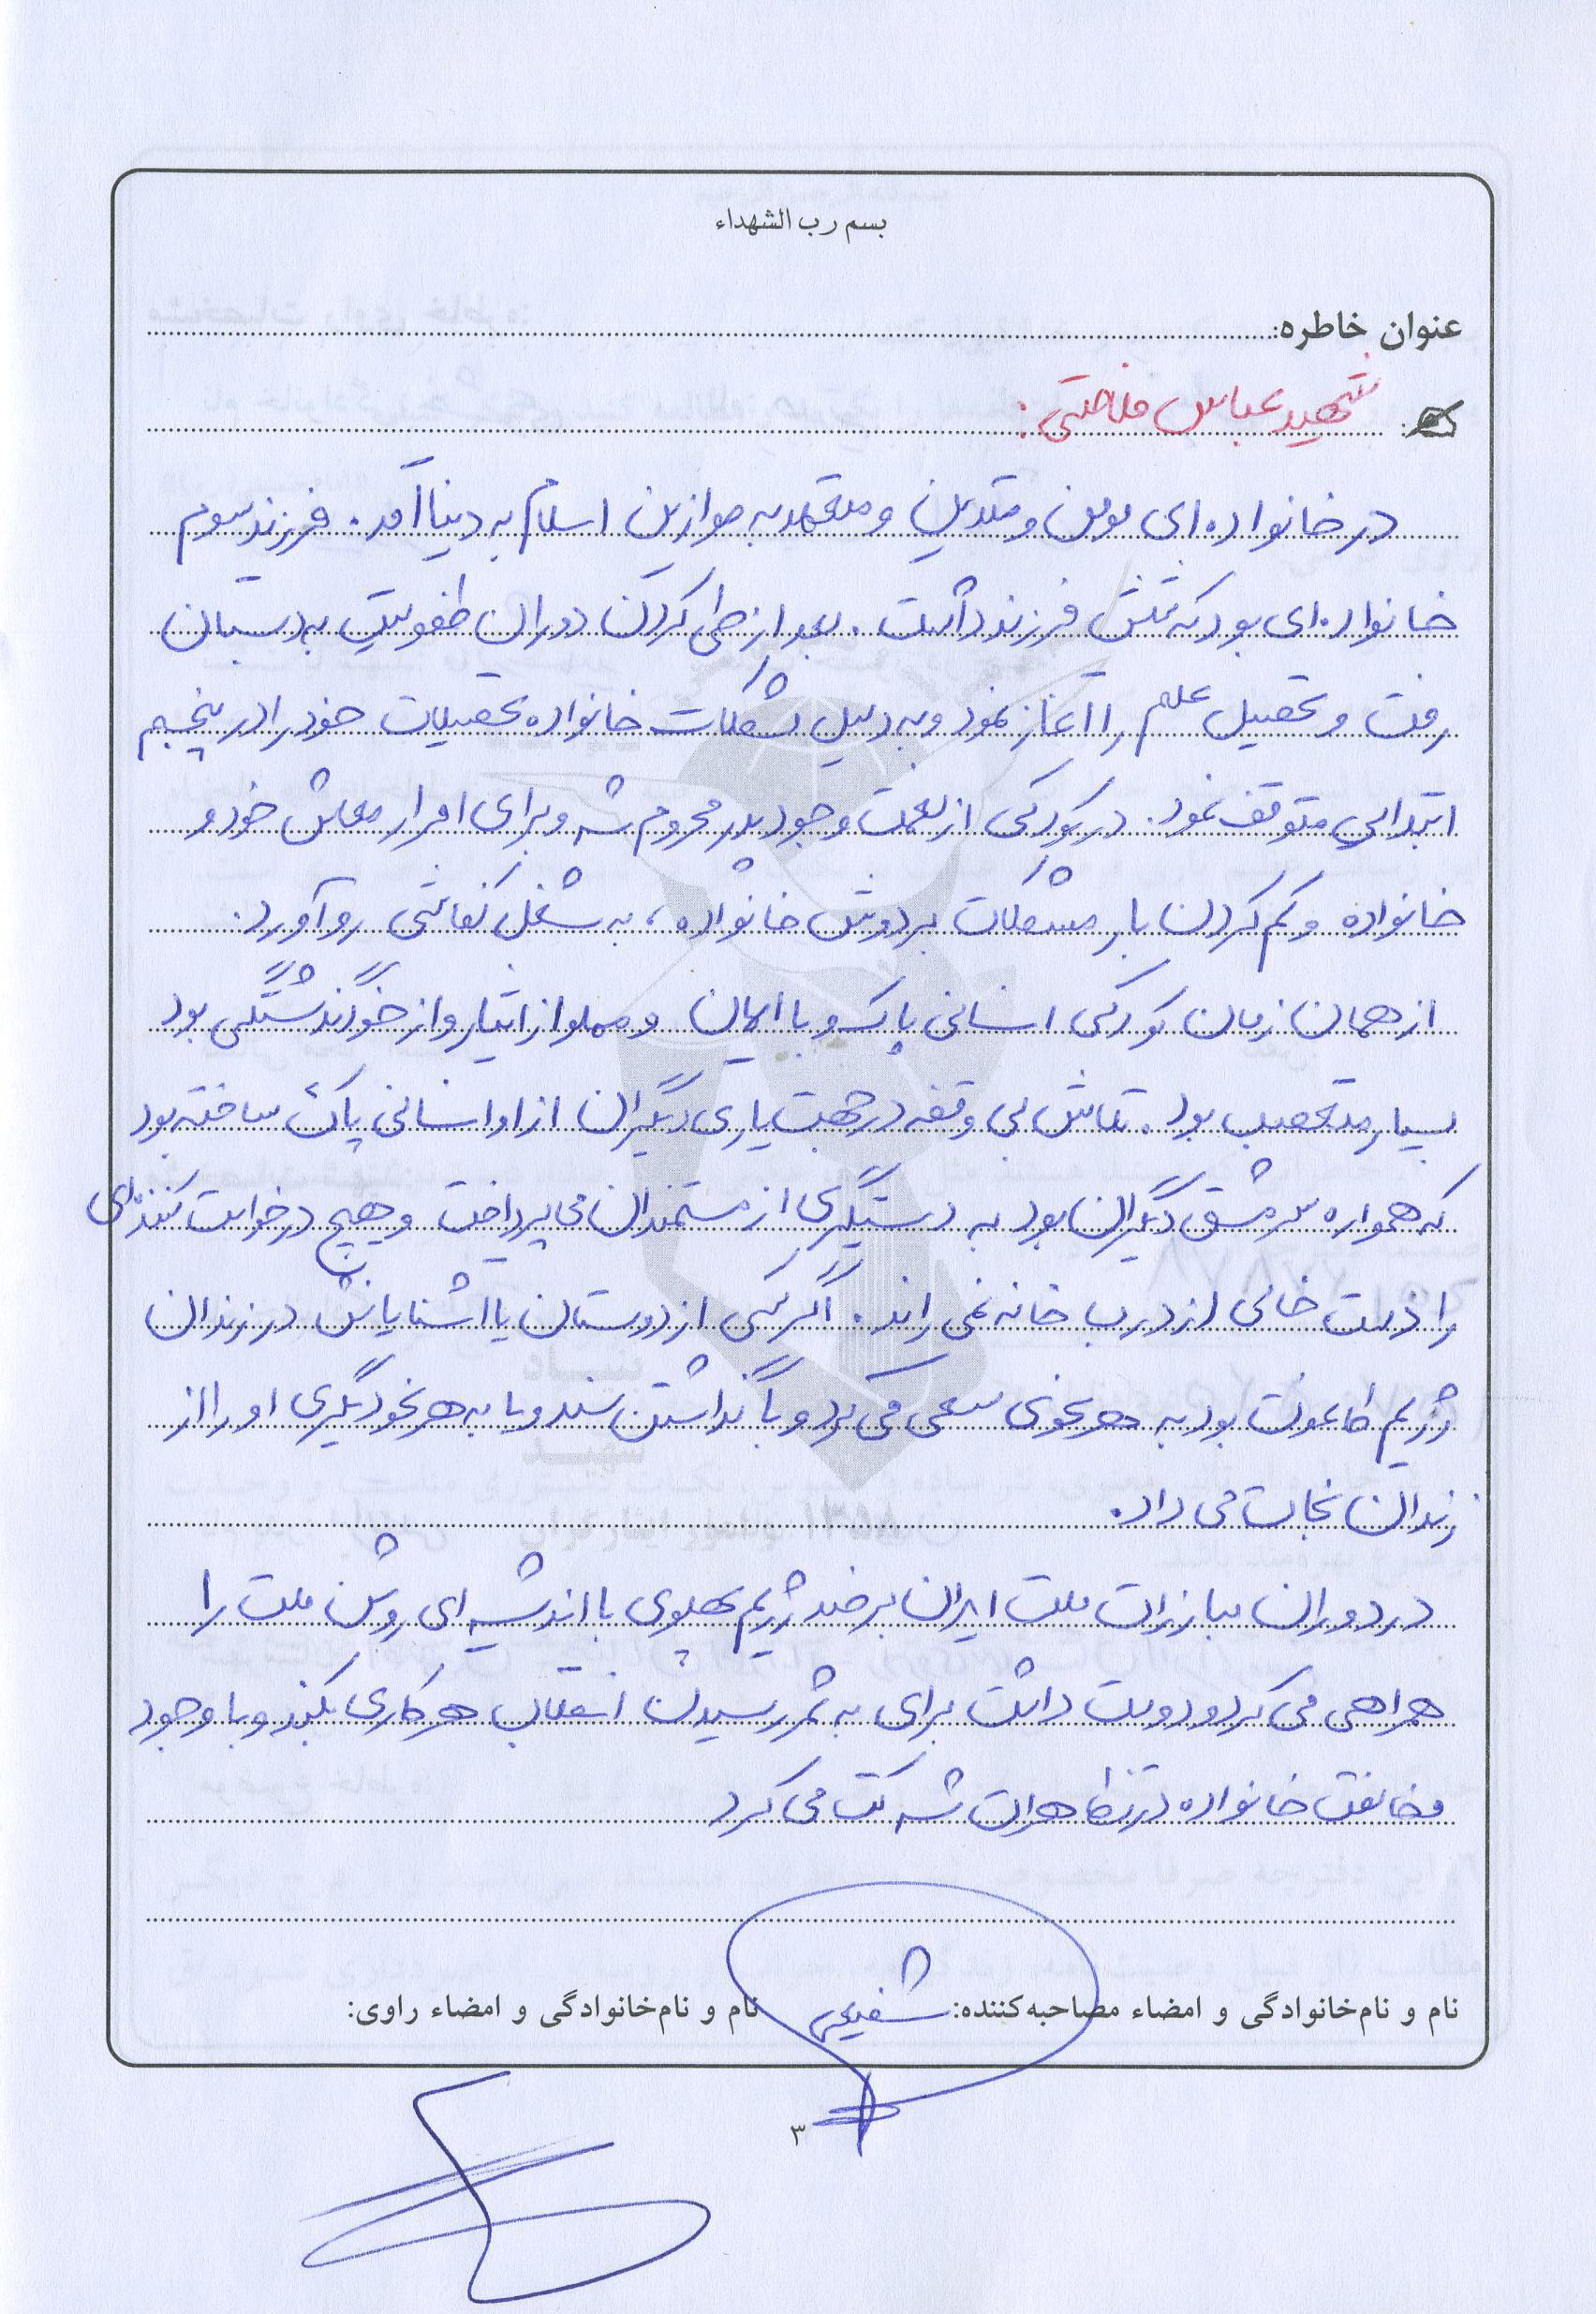 بسم رب الشهداء
عنوان خاطره:
شهید عباس فلاحتی:
در خانواده ای مومن و متدین و متعهد به موازین اسلام به دنیا آمد. فرزند سوم
خانواده ای بود که شش فرزند داشت. بعد از طی کردن دوران طفولیت به دبستان
رفت و تحصیل علم را آغاز نمود و به دلیل مشکلات خانواده تحصیلات خود را در پنجم
ابتدایی متوقف نمود. در کودکی از نعمت وجود پدر محروم شد و برای امرار معاش خود و
خانواده و کم کردن بار مشکلات بر دوش خانواده، به شغل کفاشی رو آورد.
از همان زمان کودکی انسانی پاک و با ایمان و مملو از ایثار و از خودگذشتگی بود
بسیار متعصب بود. تلاش بی وقفه در جهت یاری دیگران از او انسانی پاک ساخته بود
که همواره سرمشق دیگران بود به دستگیری از مستمندان می پرداخت و هیچ درخواست کننده ای
را دست خالی از درب خانه نمی راند. اگر کسی از دوستان یا آشنایانش در زندان
رژیم طاغوت بود به هر نحوی سعی می کرد و با گذاشتن سند و یا به هر نحو دیگری او را از
زندان نجات می داد.
در دوران مبارزات ملت ایران بر ضد رژیم پهلوی با اندیشه ای روشن ملت را
همراهی می کرد و دوست داشت برای به ثمر رسیدن انقلاب هر کاری بکند و با وجود
مخالفت خانواده در تظاهرات شرکت می کرد
نام و نام‌خانوادگی و امضاء مصاحبه‌کننده: شفیعی نام و نام‌خانوادگی و امضاء راوی:
۳